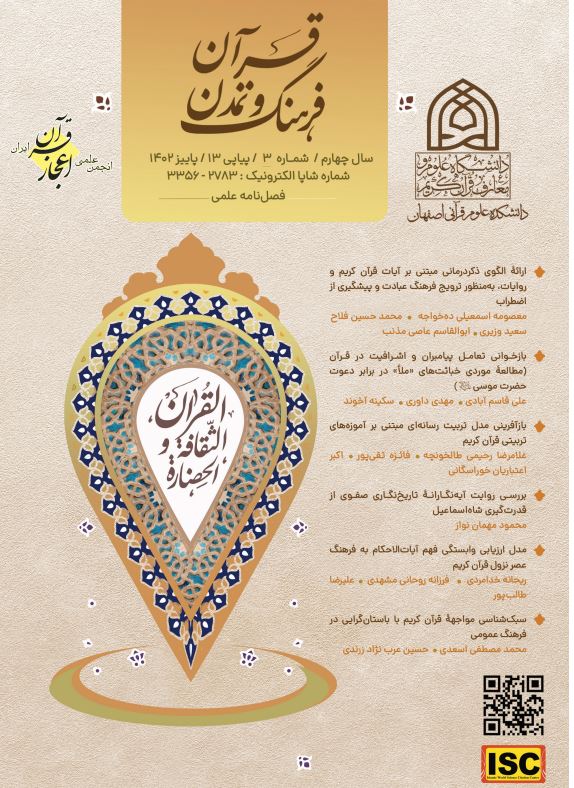 قرآن
فرهنگ و تمدن
سال چهارم / شماره ۳ / پیاپی ۱۳ / پاییز ۱۴۰۲
شماره شاپا الکترونیک : ۲۷۸۳ - ۳۳۵۶
فصل‌نامه علمی
دانشگاه علوم و
معارف قرآن کریم
دانشکده علوم قرآنی اصفهان
انجمن علمی
اعجاز قرآن
ایران
ارائهٔ الگوی ذکردرمانی مبتنی بر آیات قرآن کریم و
روایات، به‌منظور ترویج فرهنگ عبادت و پیشگیری از
اضطراب
معصومه اسمعیلی ده‌خواجه • محمد حسین فلاح
سعید وزیری • ابوالقاسم عاصی مذنب
بازخوانی تعامل پیامبران و اشرافیت در قرآن
(مطالعهٔ موردی خباثت‌های «ملأ» در برابر دعوت
حضرت موسی)
علی قاسم آبادی • مهدی داوری • سکینه آخوند
بازآفرینی مدل تربیت رسانه‌ای مبتنی بر آموزه‌های
تربیتی قرآن کریم
غلامرضا رحیمی طالخونچه • فائزه تقی‌پور • اکبر
اعتباریان خوراسگانی
بررسی روایت آیه‌نگارانهٔ تاریخ‌نگاری صفوی از
قدرت‌گیری شاه‌اسماعیل
محمود مهمان نواز
مدل ارزیابی وابستگی فهم آیات‌الاحکام به فرهنگ
عصر نزول قرآن کریم
ریحانه خدامردی • فرزانه روحانی مشهدی • علیرضا
طالب‌پور
سبک‌شناسی مواجههٔ قرآن کریم با باستان‌گرایی در
فرهنگ عمومی
محمد مصطفی اسعدی • حسین عرب نژاد زرندی
القرآن
الثقافة و
الحضارة
ISC
Islamic World Science Citation Center